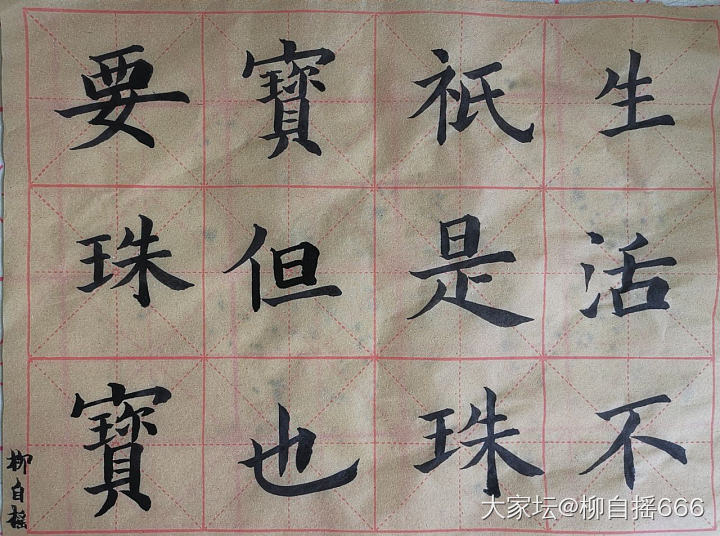 生活不
祇是珠
寶但也
要珠寶
柳自摇
大家坛@柳自摇666